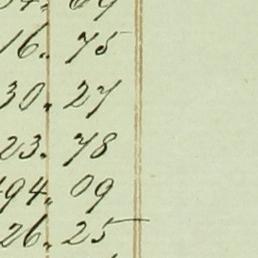 16.. 75
30.. 27
23.. 78
94.. 09
26.. 25